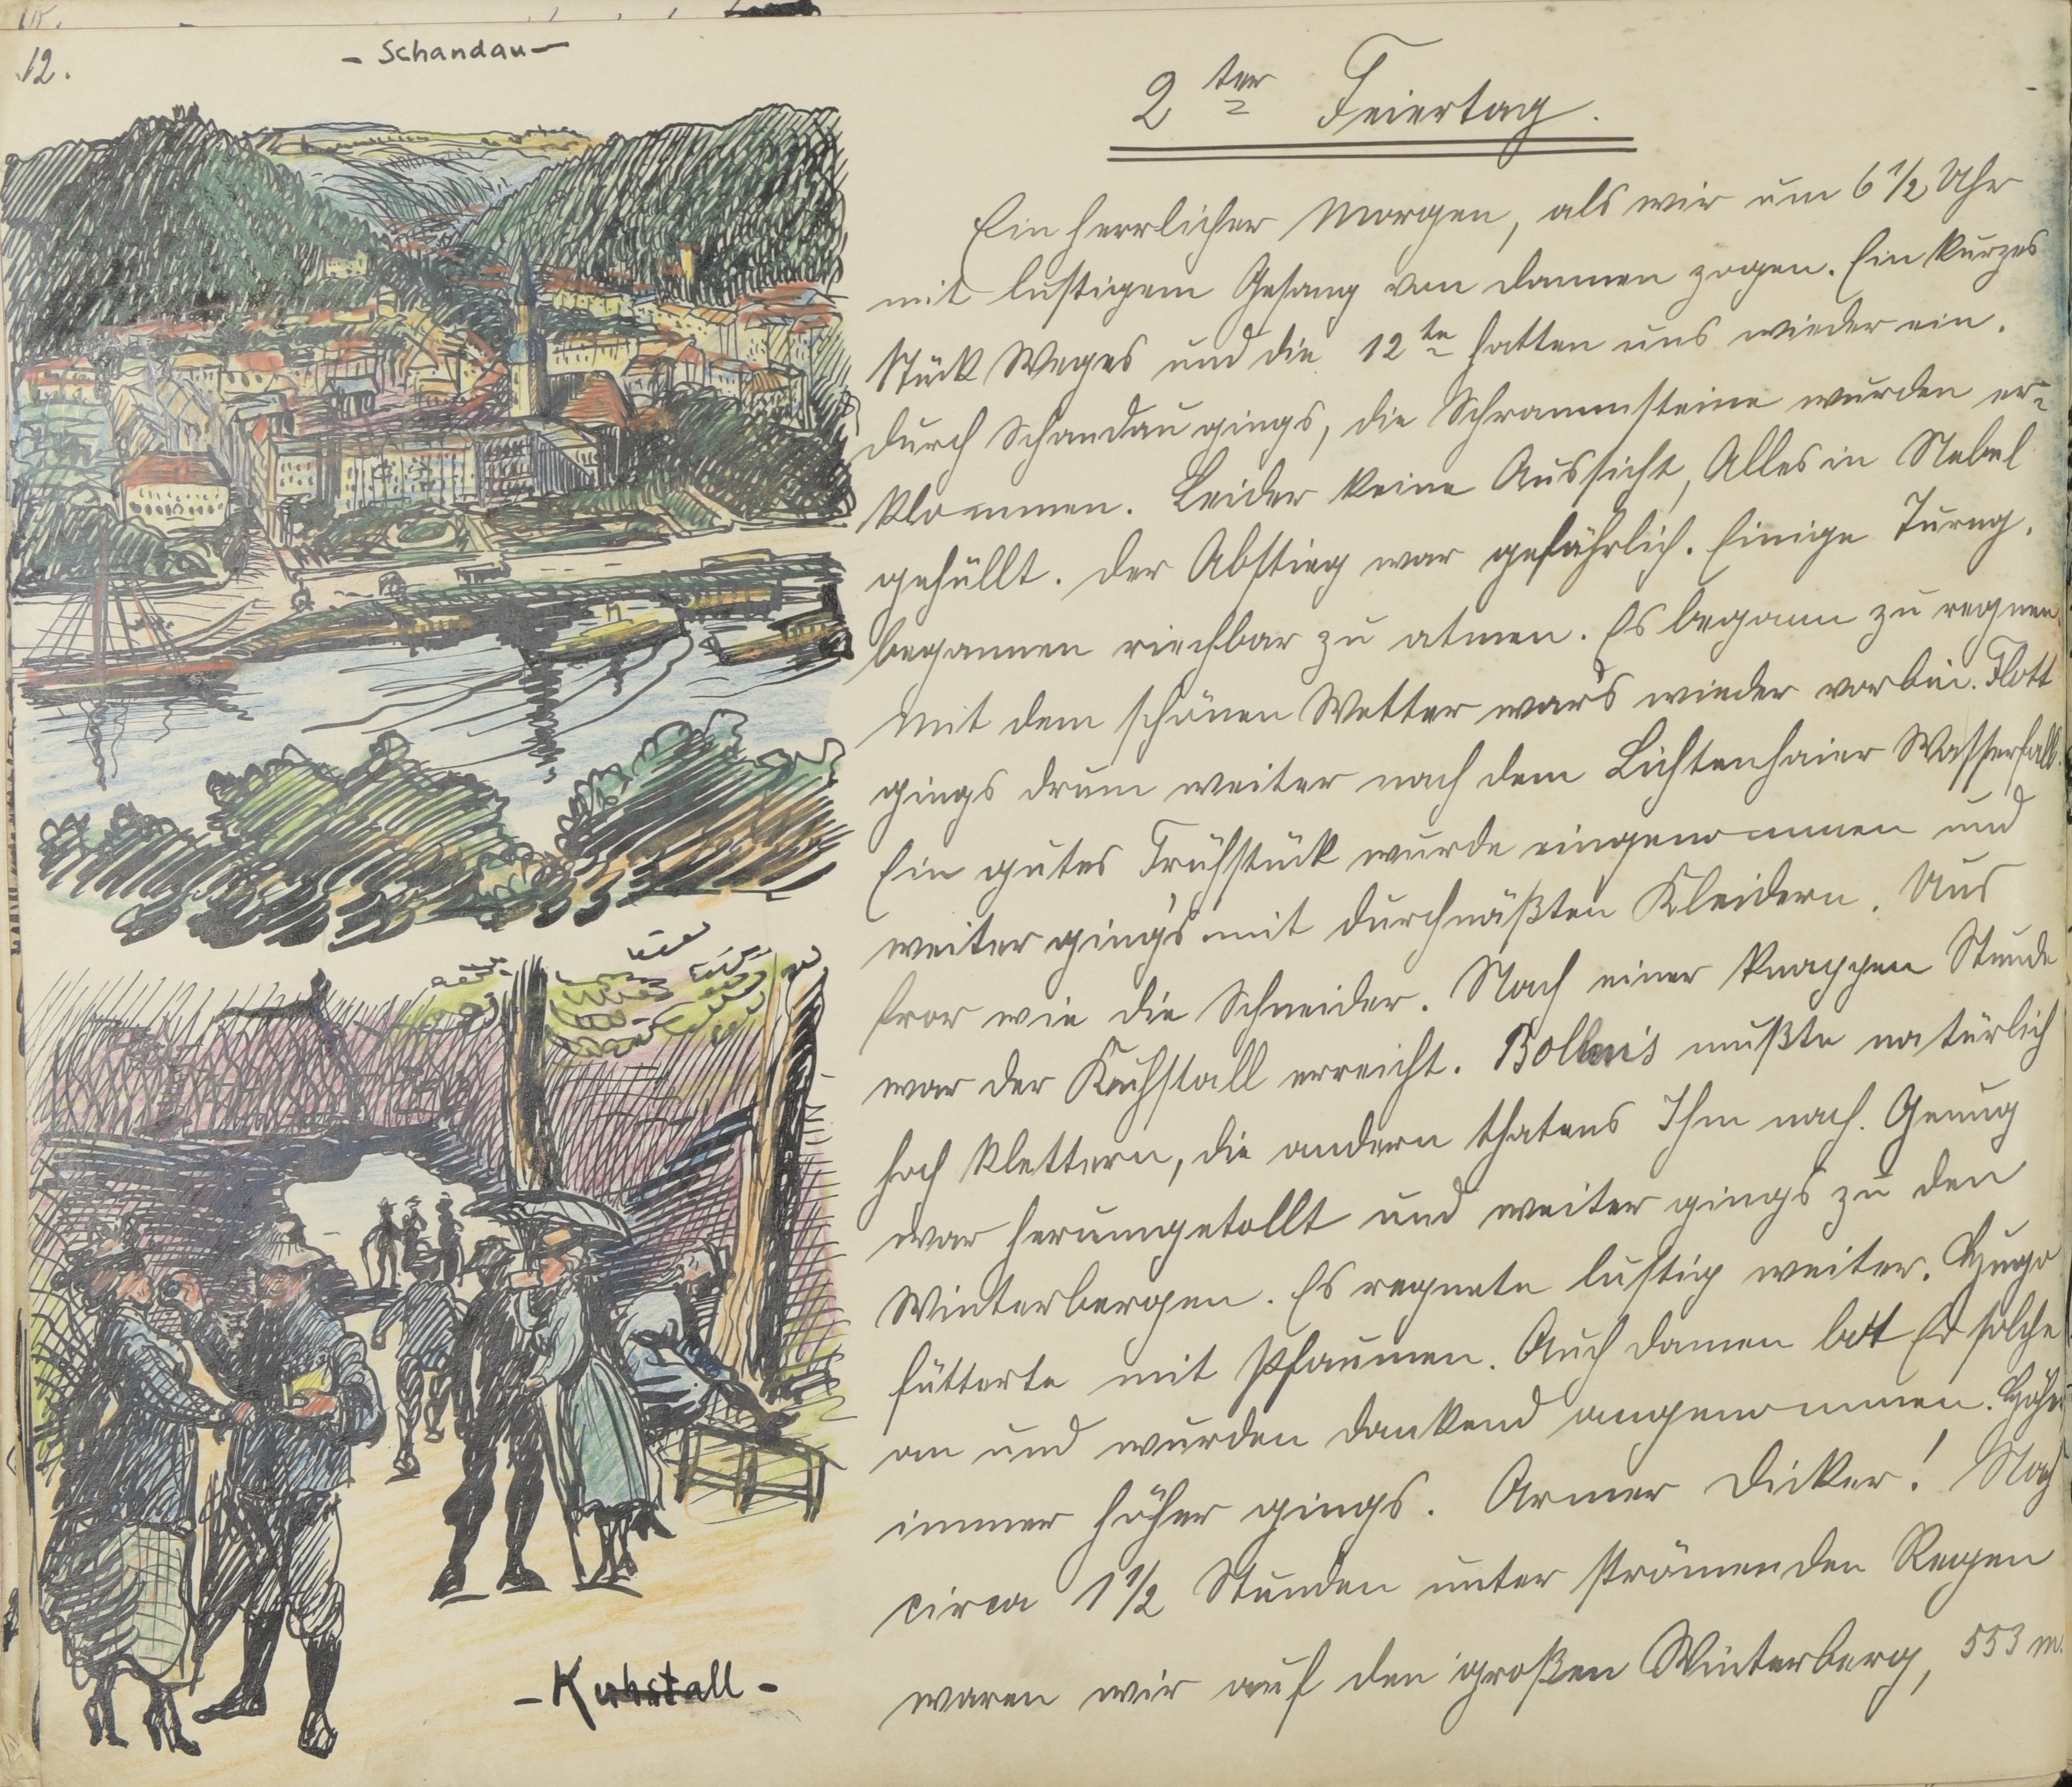 12.
- Schandau -
2ter Feiertag.
Ein herrlicher Morgen, als wir um 6 1/2 Uhr
mit lustigem Gesang von dannen zogen. Ein kurzes
Stück Weges und die 12te hatten uns wieder ein.
Durch Schandau gings, die Schrammsteine wurden er-
klommen. Leider keine Aussicht, Alles in Nebel
gehüllt. Der Abstieg war gefährlich. Einige Turng.
begannen riechbar zu atmen. Es begann zu regnen
mit dem schönen Wetter war's wieder vorbei. Flott
gings drum weiter nach dem Lichtenhainer Wasserfall.
Ein gutes Frühstück wurde eingenommen und
weiter ging's mit durchnäßten Kleidern. Uns
fror wie die Schneider. Nach einer knappen Stunde
war der Kuhstall erreicht. mußte natürlich
hoch klettern, die andern thatens Ihm nach. Genug
war herumgetollt und weiter gings zu den
Winterbergen. Es regnete lustig weiter. Hugo
fütterte mit Pflaumen. Auch Damen bot Er solche
an und wurden dankend angenommen. Höher
immer höher gings. Armer Dicker! Nach
circa 1 1/2 Stunden unter strömenden Regen
waren wir auf den großen Winterberg, 553 m.
- Kuhstall -